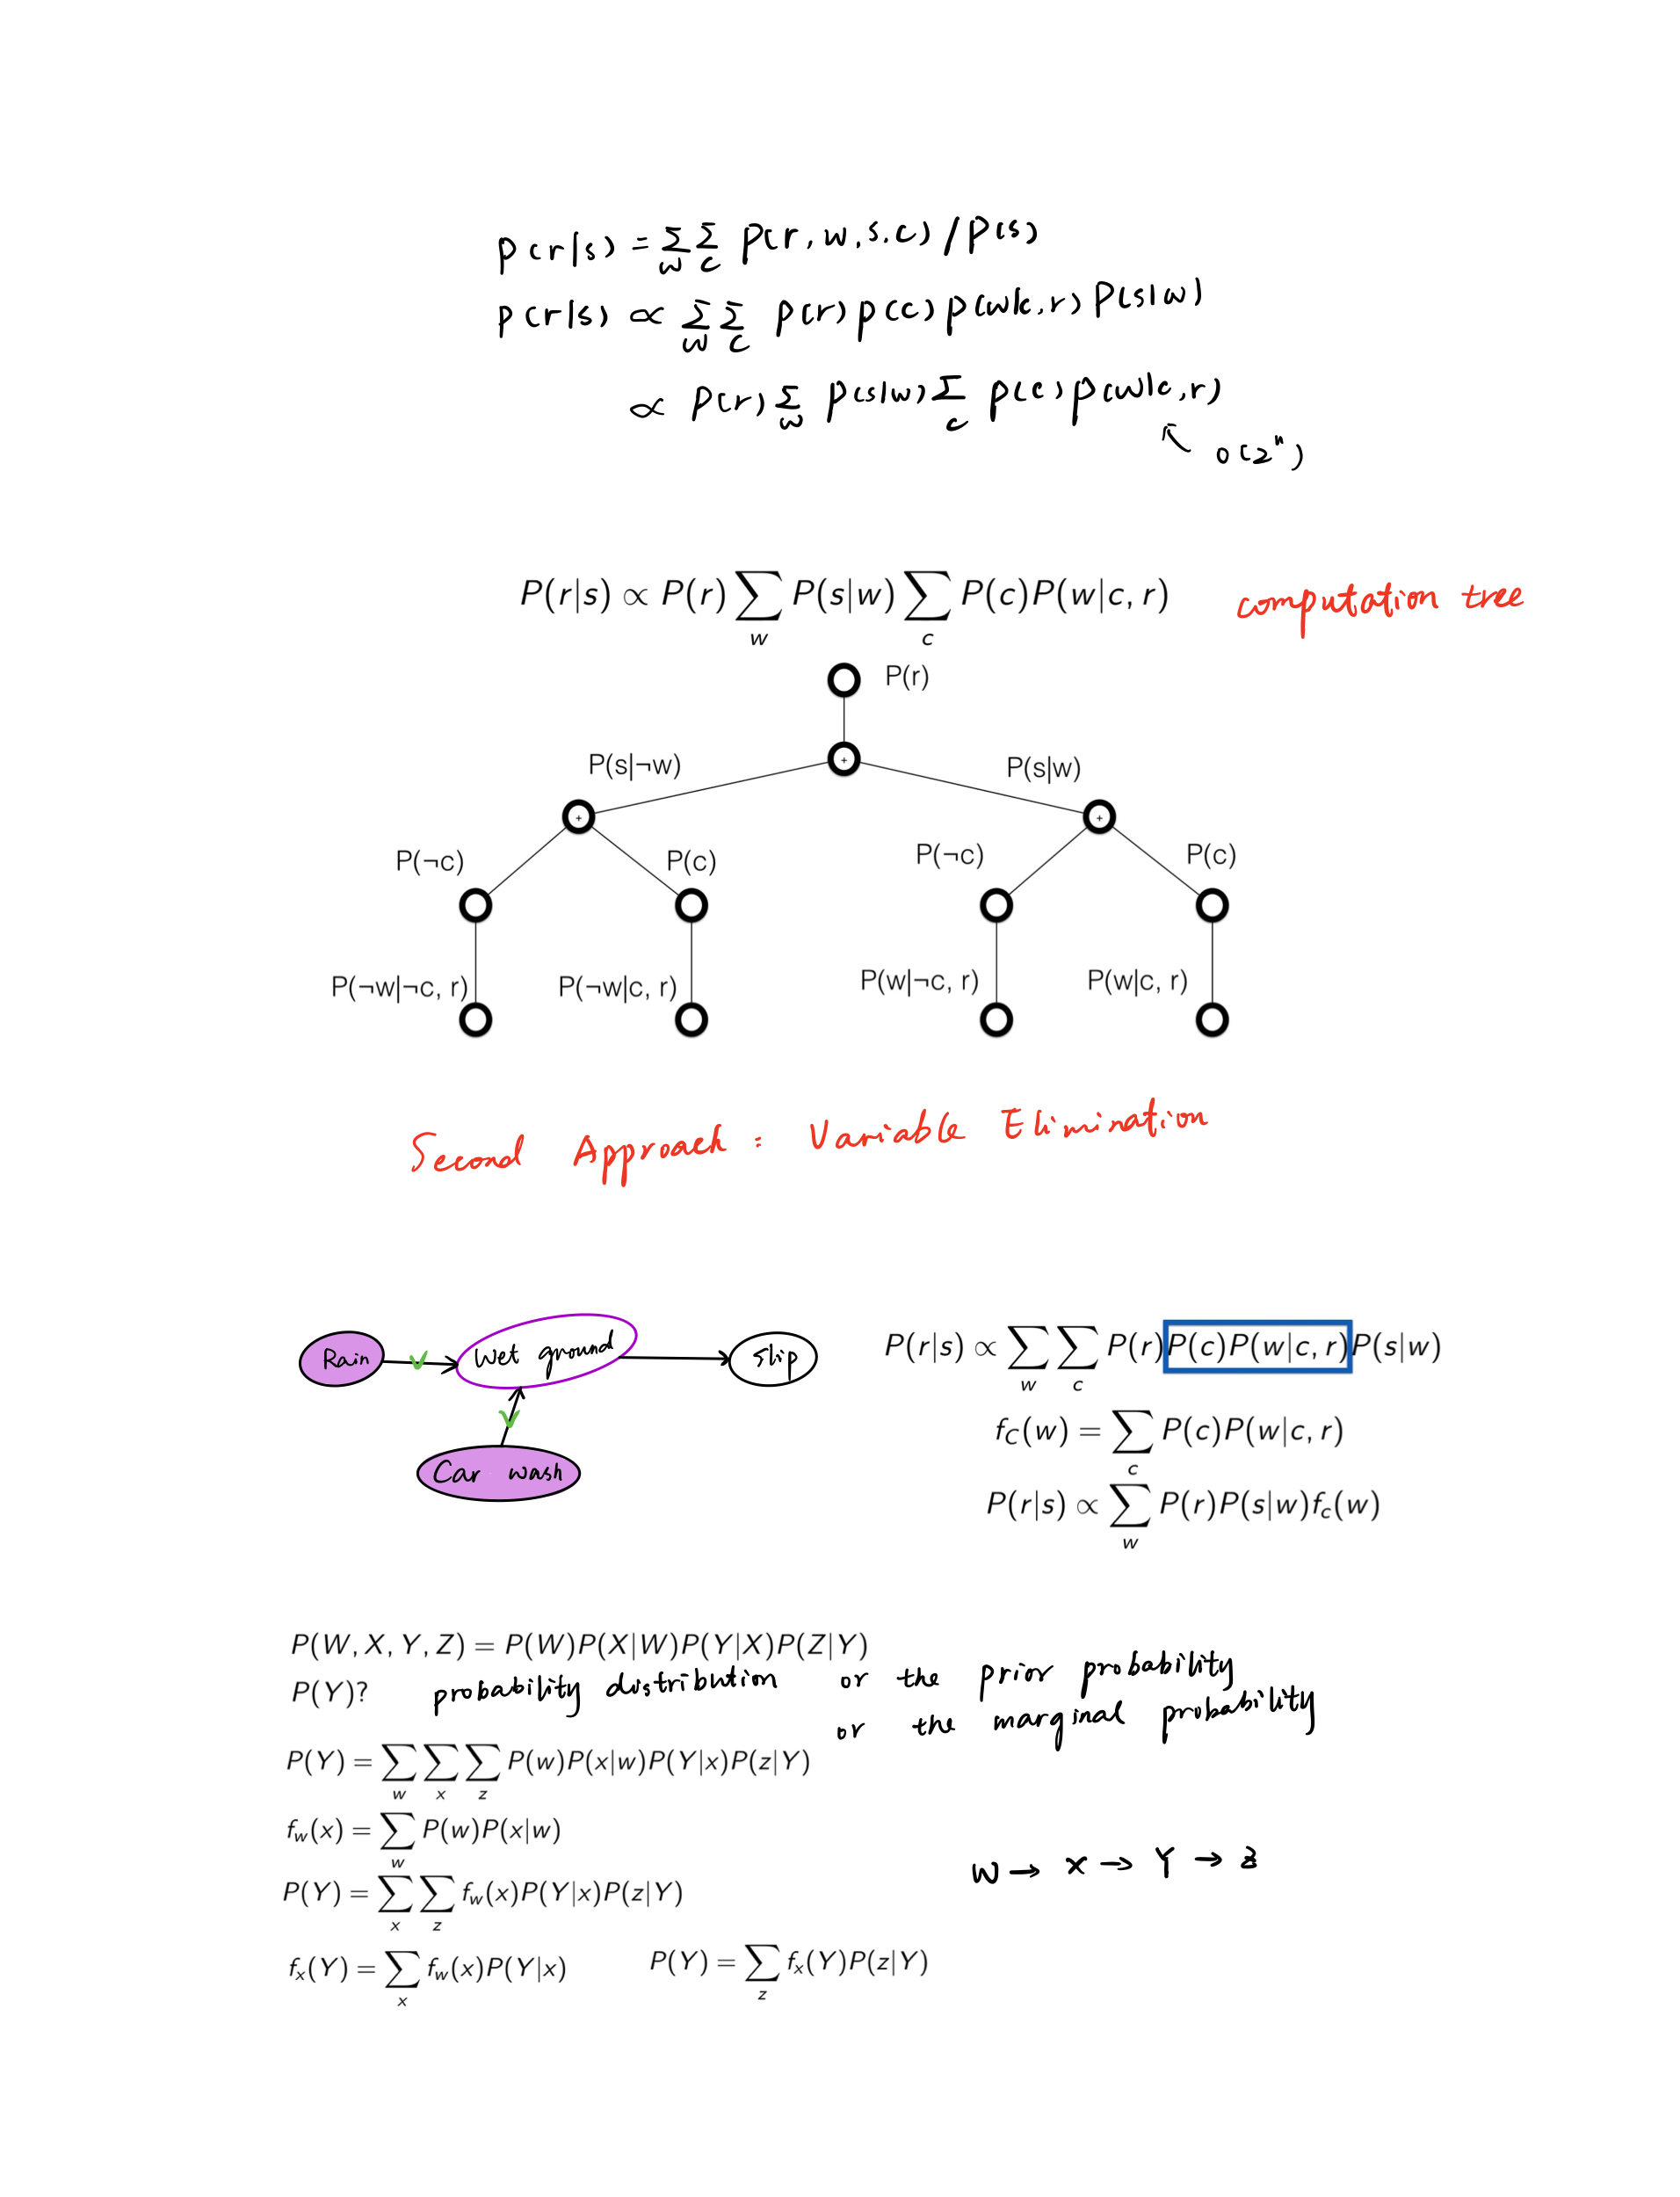 p(r|s) = Σ_w Σ_c p(r, w, s, c) / p(s)
p(r|s) ∝ Σ_w Σ_c p(r) p(c) p(w|c, r) P(s|w)
∝ p(r) Σ_w p(s|w) Σ_c p(c) p(w|c, r)
O(2^n)
P(r|s) ∝ P(r) Σ_w P(s|w) Σ_c P(c)P(w|c, r) computation tree
P(r)
+
P(s|¬w) P(s|w)
+ +
P(¬c) P(c) P(¬c) P(c)
P(¬w|¬c, r) P(¬w|c, r) P(w|¬c, r) P(w|c, r)
Second Approach : Variable Elimination
Rain Wet ground Slip
Car wash
P(r|s) ∝ Σ_w Σ_c P(r)P(c)P(w|c, r)P(s|w)
f_C(w) = Σ_c P(c)P(w|c, r)
P(r|s) ∝ Σ_w P(r)P(s|w)f_c(w)
P(W, X, Y, Z) = P(W)P(X|W)P(Y|X)P(Z|Y)
P(Y)? probability distribution or the prior probability
or the marginal probability
P(Y) = Σ_w Σ_x Σ_z P(w)P(x|w)P(Y|x)P(z|Y)
f_w(x) = Σ_w P(w)P(x|w)
W → X → Y → Z
P(Y) = Σ_x Σ_z f_w(x)P(Y|x)P(z|Y)
f_x(Y) = Σ_x f_w(x)P(Y|x) P(Y) = Σ_z f_x(Y)P(z|Y)